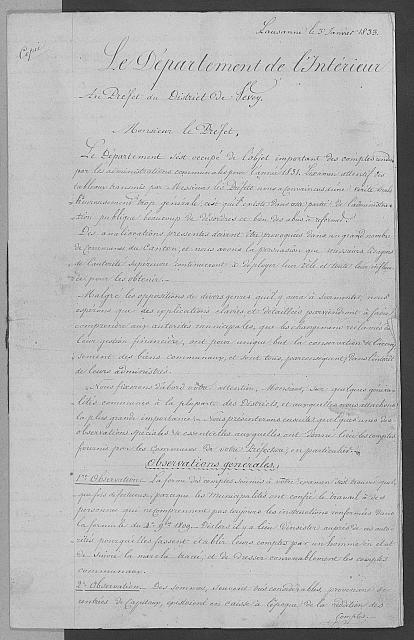 Lausanne le 3 Janvier 1833.
Copie
Le Département de l'Intérieur
Au Préfet du District de Vevey.
Monsieur le Préfet,
Le Département s'est occupé de l'objet important des comptes rendus
par les administrations communales pour l'année 1831. L'examen attentif des
tableaux transmis par Messieurs les Préfets nous a convaincus d'une vérité
malheureusement trop générale, c'est qu'il existe dans cette partie de l'administra-
ation publique beaucoup de désordres et bien des abus à réformer.
Des améliorations pressantes doivent être provoquées dans un grand nombre
de Communes du Canton, et nous avons la persuasion que Messieurs les agens
de l'autorité supérieure continueront à déployer leur zèle et toute leur influen-
ce pour les obtenir.
Malgré les oppositions de divers genres qu'il y aura à surmonter, nous
espérons que des explications claires et détaillées parviendront à faire
comprendre aux autorités municipales, que les changemens réclamés dans
leur gestion financière, ont pour unique but la conservation et l'accrois-
sement des biens communaux, et sont tous, par conséquent, dans l'intérêt
de leurs administrés.
Nous fixerons d'abord votre attention, Monsieur, sur quelques généra-
lités communes à la plupart des Districts, et auxquelles nous attachons
la plus grande importance. Nous présenterons ensuite quelques unes des
observations spéciales & essentielles auxquelles ont donné lieu les comptes
fournis pour les Communes de votre Préfecture, en particulier.
Observations générales.
1re Observation. La forme des comptes soumis à votre examen est trouvée quel-
que fois défectueuse, parceque les Municipalités ont confié ce travail à des
personnes qui ne comprennent pas toujours les instructions renfermées dans
la formule du 3e 9bre 1809. Dès lors il y a lieu d'insister auprès de ces auto-
rités pour qu'elles fassent établir leurs comptes par un homme en état
de suivre la marche tracée, et de dresser convenablement les comptes
communaux.
2e Observation. Des sommes, souvent très considérables, provenant de
rentrées de Capitaux, existoient en caisse à l'époque de la reddition des
Comptes.